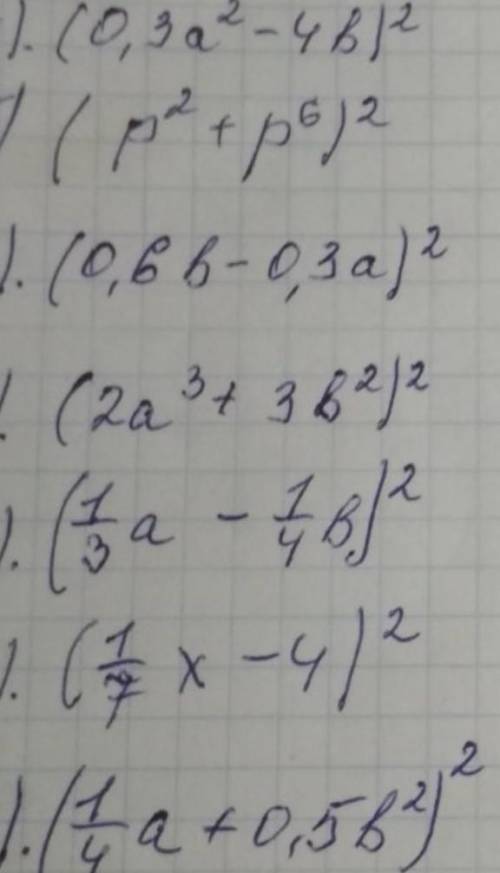 ). (0,3a² - 4b)²
) (p² + p⁶)²
). (0,6b - 0,3a)²
). (2a³ + 3b²)²
). (1/3 a - 1/4 b)²
). (1/7 x - 4)²
). (1/4 a + 0,5b²)²